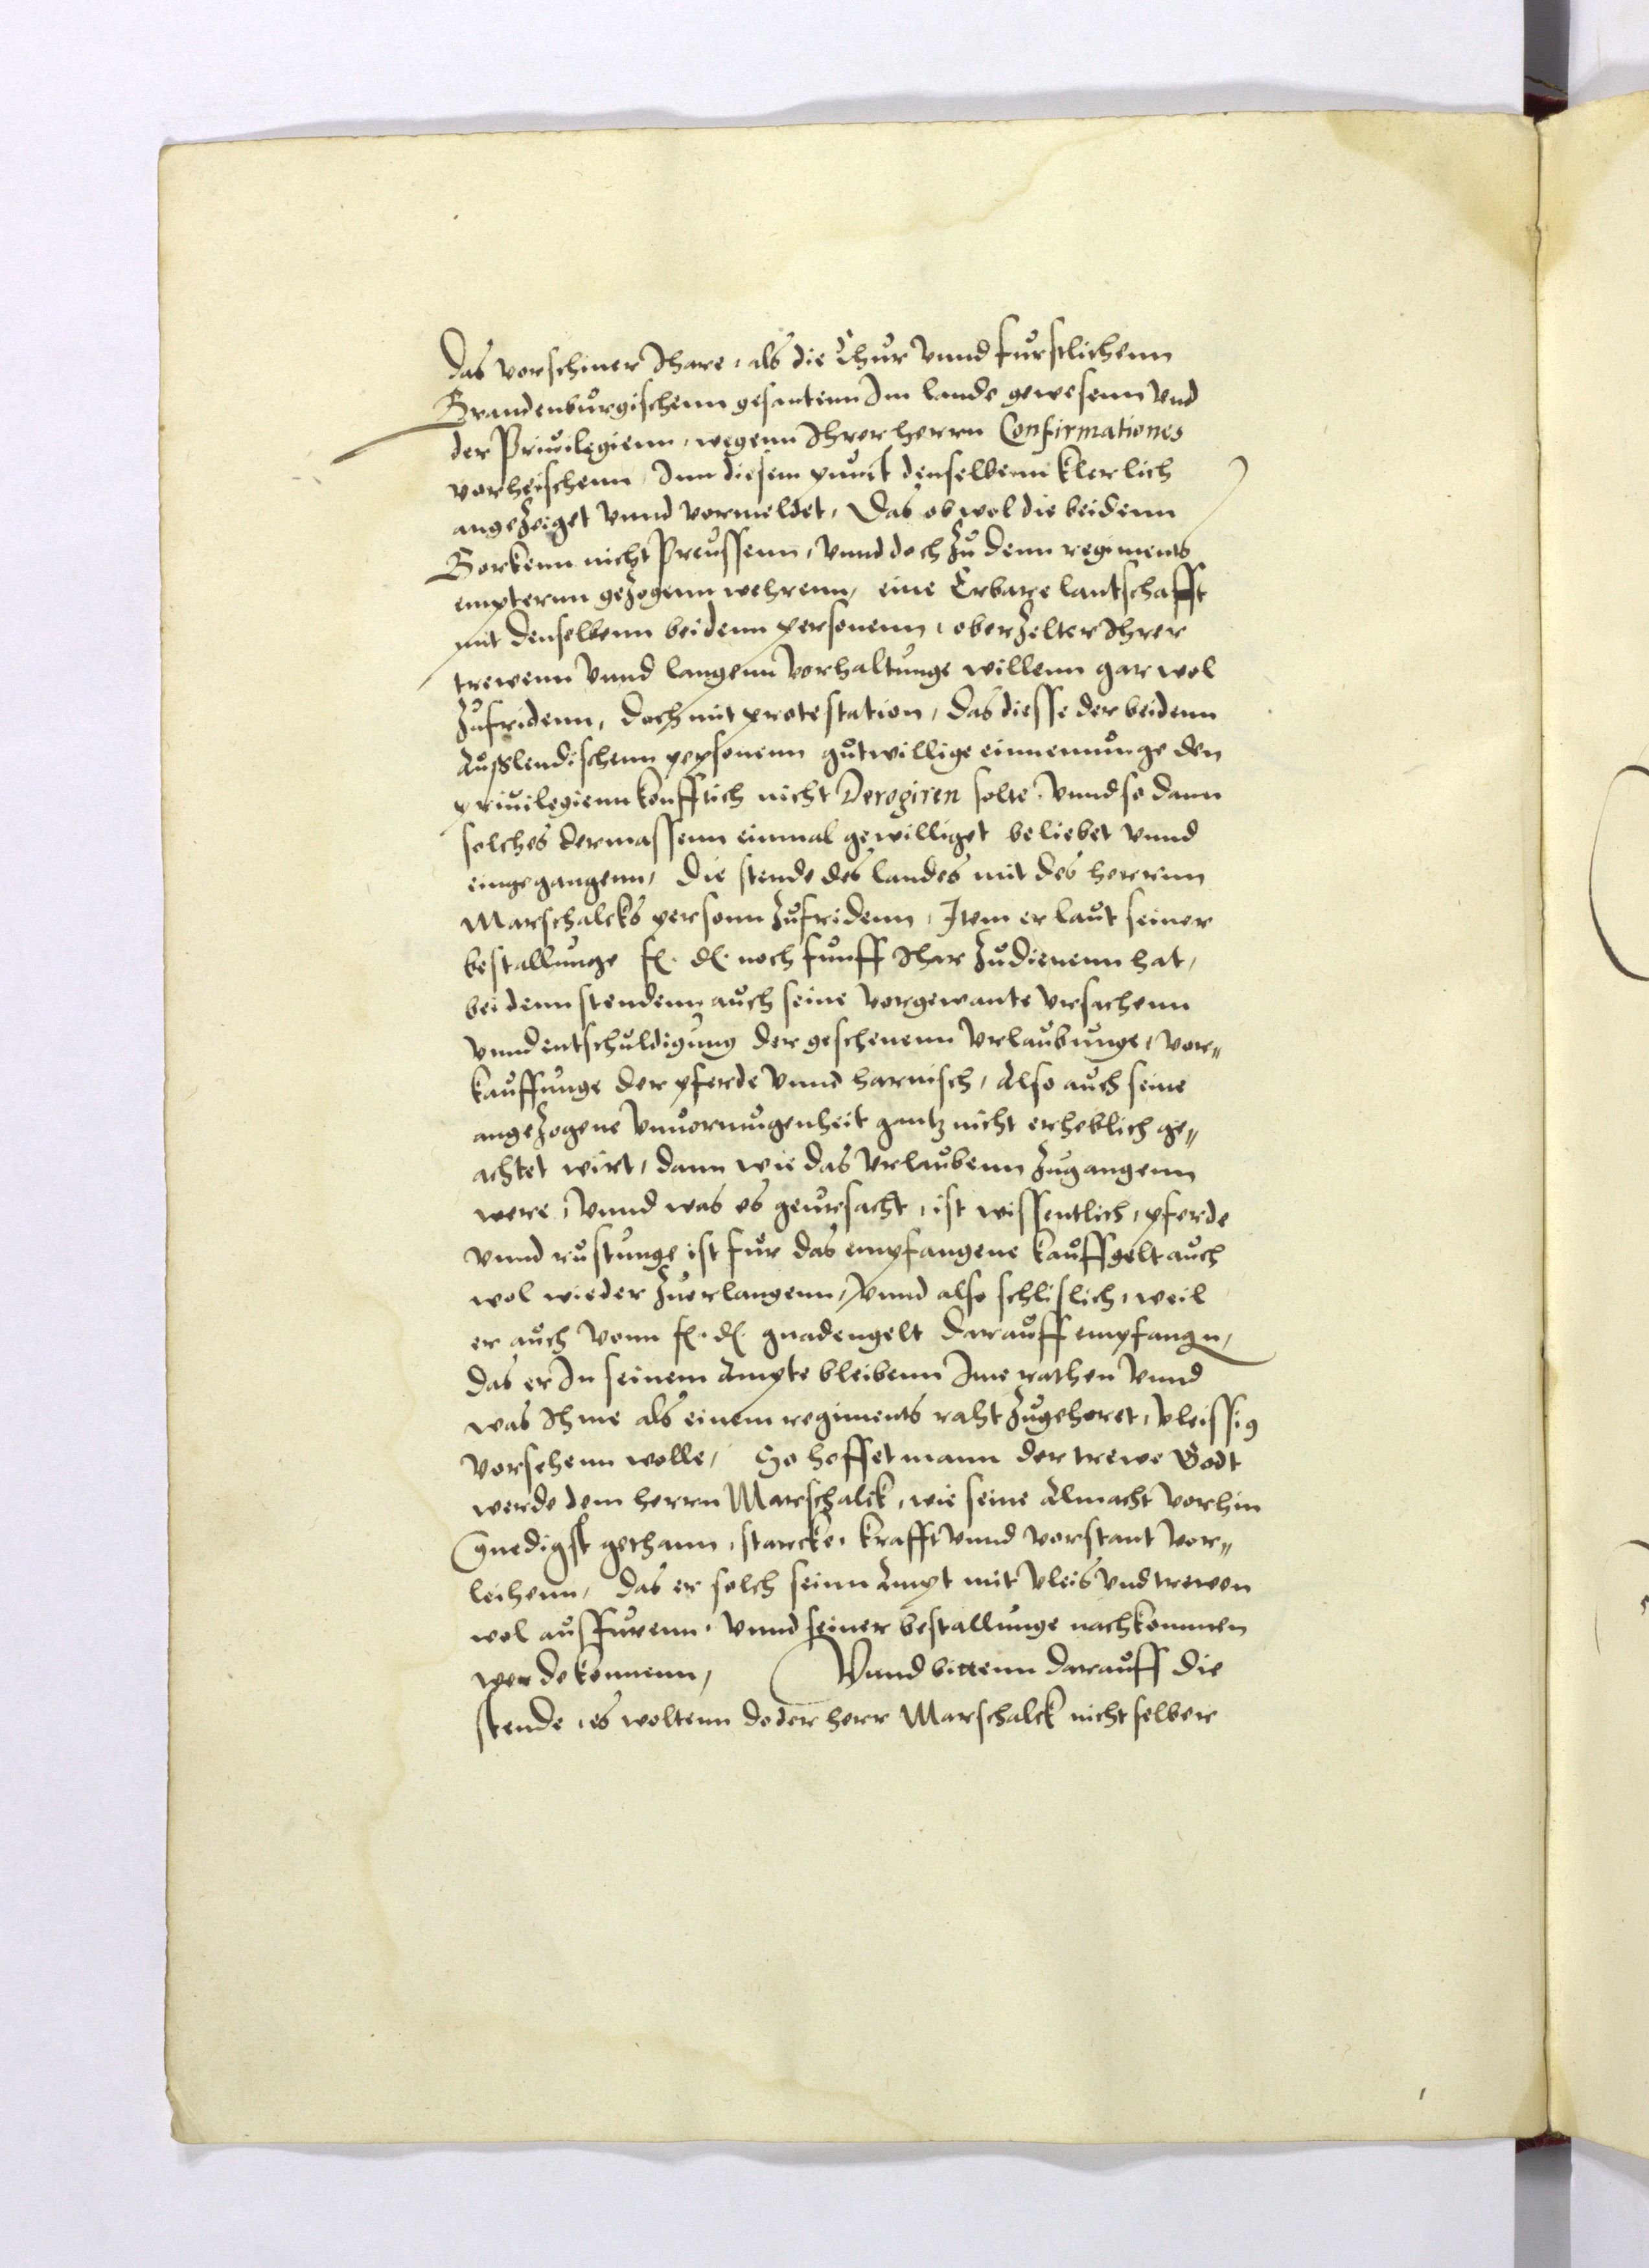 das vorschiner Jhare, als die Chur vnnd furstlichenn
Brandenburgischenn gesantenn Jm lande gewesenn vnd
der Priuilegienn, wegenn Jhrer herrn Confirmationes
vorheischenn, Jnn diesem punct denselbenn klerlich
angezeiget vnnd vormeldet, das ob wol die beidenn
Borkenn nicht Preussenn, vnnd doch zu denn regiments
empternn gezogenn wehrenn, eine Erbare lantschafft
mit denselbenn beidenn personenn, Jhrer
trewenn vnnd langenn vorhaltunge willenn gar wol
zufridenn, doch mit protestation, das diesse der beidenn
Auslendischenn personenn gutwillige einnemunge den
priuilegienn konfftich nicht Derogiren solte, vnnd so dann
solches dermassenn einmal gewilliget beliebet vnnd
eingegangenn, die stende des landes mit des herrnn
Marschalcks personn zufridenn, Jtem er laut seiner
bestallunge f. d. noch funff Jhar zudienenn hat,
bei denn stendenn auch seine vorgewante vrsachenn
vnnd entschuldigung der geschenenn vrlaubunge, vor„
kauffunge der pferde vnnd harnisch, Also auch seine
angezogene vnuormugenheit gantz nicht erheblich ge„
achtet wirt, dann wie das vrlaubenn zugangenn
were, vnnd was es geursacht, ist wissentlich, pferde
vnnd rustunge ist fur das empfangene kauffgelt auch
wol wieder zuerlangenn, vnnd also schlislich, weil
er auch vonn f. d. gnadengelt darauff empfangn,
das er Jn seinem Ampte bleibenn Jme rathen vnnd
was Jhme als einem regiments raht zugehoret, vleissig
vorsehenn wolle, So hoffet mann der trewe Godt
werde dem herrn Marschalck, wie seine Almacht vorhin
Gnedigst gethann, starcke, krafft vnnd vorstant vor„
leihenn, das er solch seinn Ampt mit vleis vnd trewen
wol ausfurenn, vnnd seiner bestallunge nachkommen
werde konnenn, Vnnd bittenn darauff die
stende, es woltenn do der herr Marschalck nicht selber